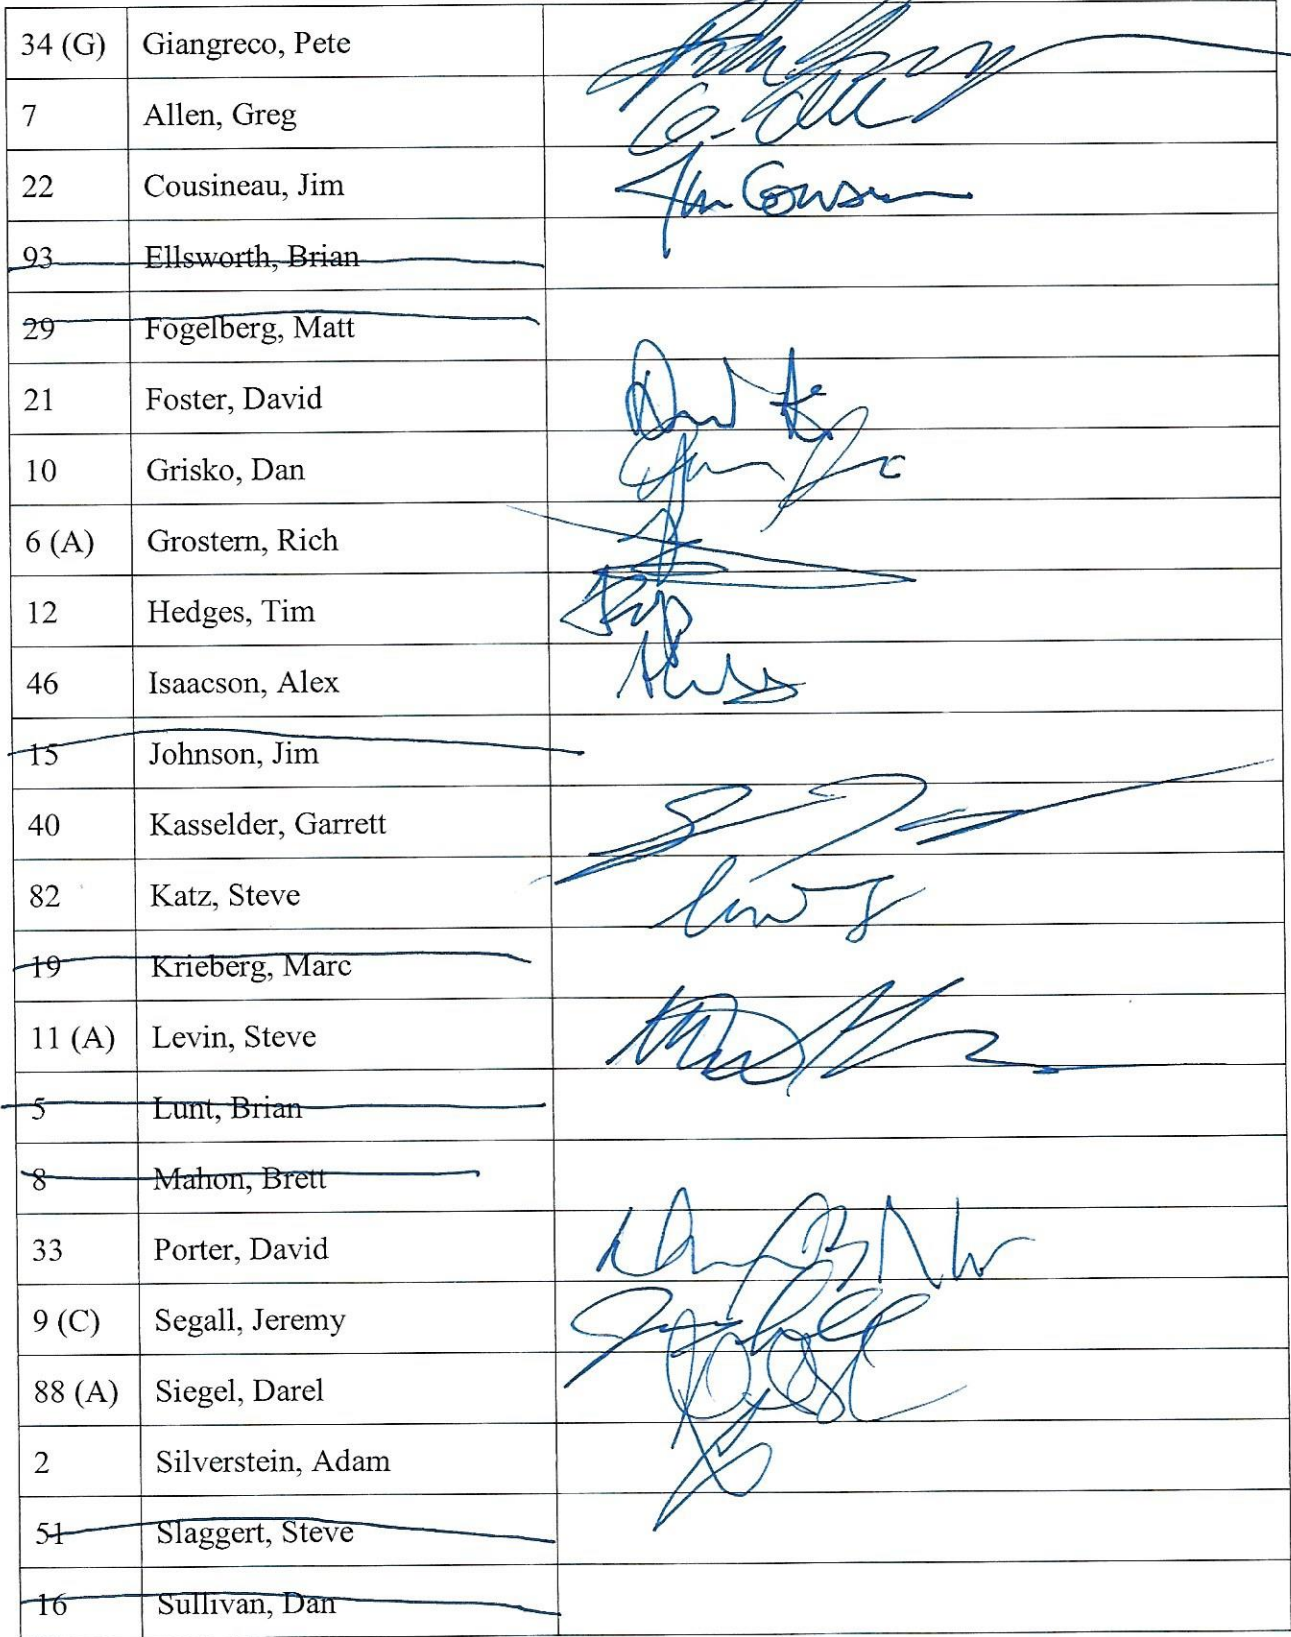 34 (G) Giangreco, Pete
7 Allen, Greg
22 Cousineau, Jim Jim Cous
93 Ellsworth, Brian
29 Fogelberg, Matt
21 Foster, David
10 Grisko, Dan
6 (A) Grostern, Rich
12 Hedges, Tim
46 Isaacson, Alex
15 Johnson, Jim
40 Kasselder, Garrett
82 Katz, Steve
19 Krieberg, Marc
11 (A) Levin, Steve
5 Lunt, Brian
8 Mahon, Brett
33 Porter, David
9 (C) Segall, Jeremy
88 (A) Siegel, Darel
2 Silverstein, Adam
51 Slaggert, Steve
16 Sullivan, Dan